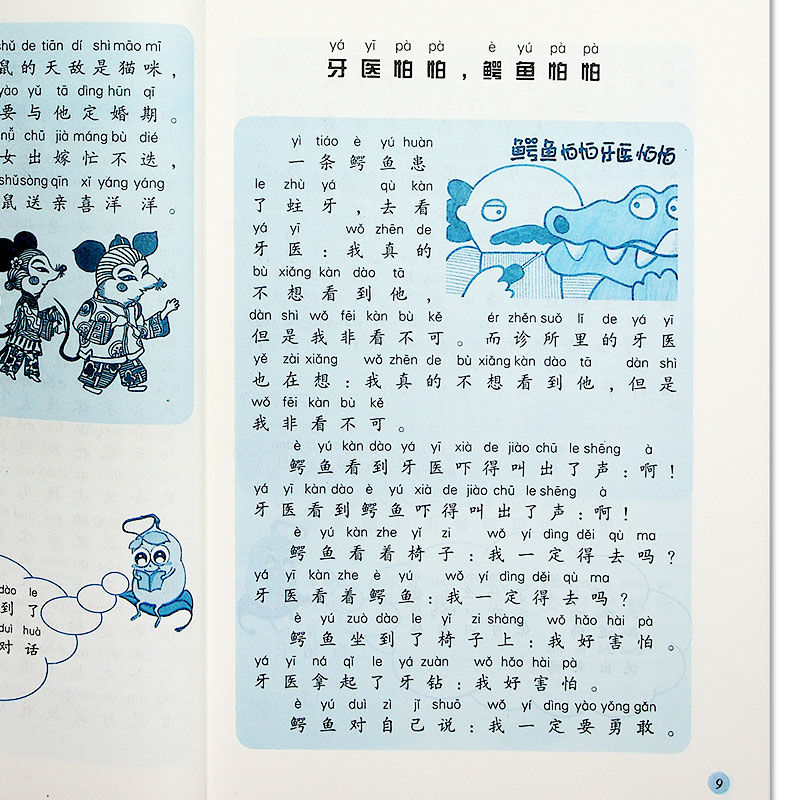 shǔ de tiān dí shì māo mī
鼠的天敌是猫咪，
yào yǔ tā dìng hūn qī
要与他定婚期。
nǚ chū jià máng bù dié
女出嫁忙不迭，
shǔ sòng qīn xǐ yáng yáng
鼠送亲喜洋洋。
dào le
到了
duì huà
对话
yá yī pà pà è yú pà pà
牙医怕怕，鳄鱼怕怕
鳄鱼怕怕牙医怕怕
yì tiáo è yú huàn
一条鳄鱼患
le zhù yá qù kàn
了蛀牙，去看
yá yī wǒ zhēn de
牙医：我真的
bù xiǎng kàn dào tā
不想看到他，
dàn shì wǒ fēi kàn bù kě ér zhěn suǒ lǐ de yá yī
但是我非看不可。而诊所里的牙医
yě zài xiǎng wǒ zhēn de bù xiǎng kàn dào tā dàn shì
也在想：我真的不想看到他，但是
wǒ fēi kàn bù kě
我非看不可。
è yú kàn dào yá yī xià de jiào chū le shēng à
鳄鱼看到牙医吓得叫出了声：啊！
yá yī kàn dào è yú xià de jiào chū le shēng à
牙医看到鳄鱼吓得叫出了声：啊！
è yú kàn zhe yǐ zi wǒ yí dìng děi qù ma
鳄鱼看着椅子：我一定得去吗？
yá yī kàn zhe è yú wǒ yí dìng děi qù ma
牙医看着鳄鱼：我一定得去吗？
è yú zuò dào le yǐ zi shàng wǒ hǎo hài pà
鳄鱼坐到了椅子上：我好害怕。
yá yī ná qǐ le yá zuàn wǒ hǎo hài pà
牙医拿起了牙钻：我好害怕。
è yú duì zì jǐ shuō wǒ yí dìng yào yǒng gǎn
鳄鱼对自己说：我一定要勇敢。
9